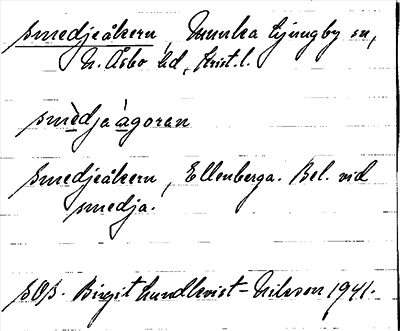 Smedjeåkern, Munka Ljungby sn,
N. Åsbo hd, Krist. l.
smèdja àgoran
Smedjeåkern, Ellenberga. Bel. vid
smedja.
Birgit Lundkvist-Nilsson 1941.